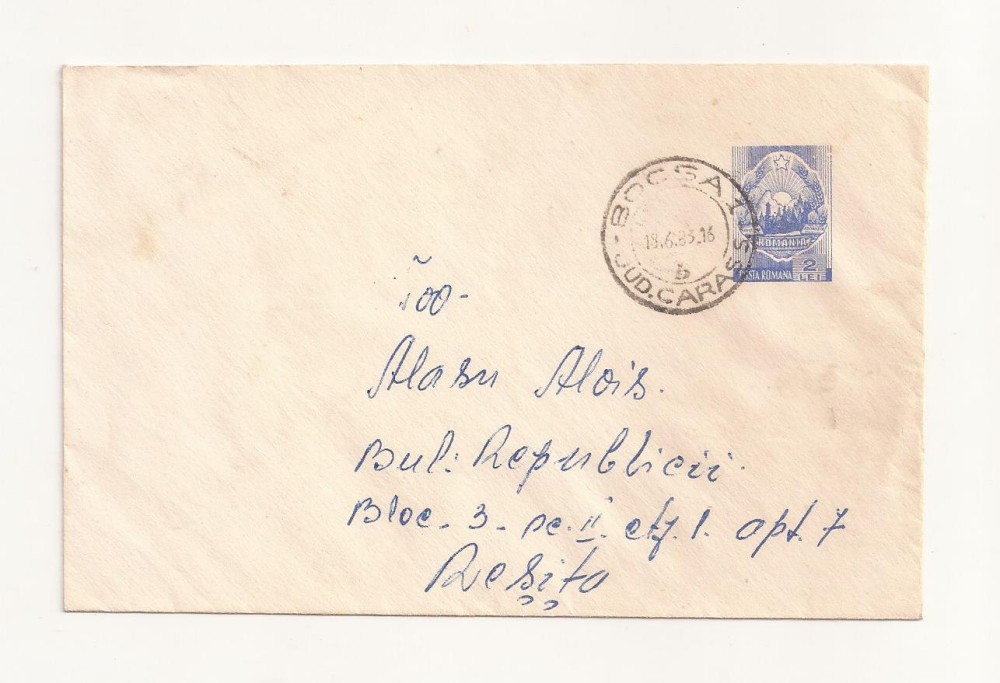 BOCSA 1
18.6.83.16
b
JUD. CARAS SS
ROMANIA
POSTA ROMANA 2 LEI
Alasu Alois.
Bul: Republicii.
Bloc. 3 - sc. II. etj. 1. apt. 7
Reșița